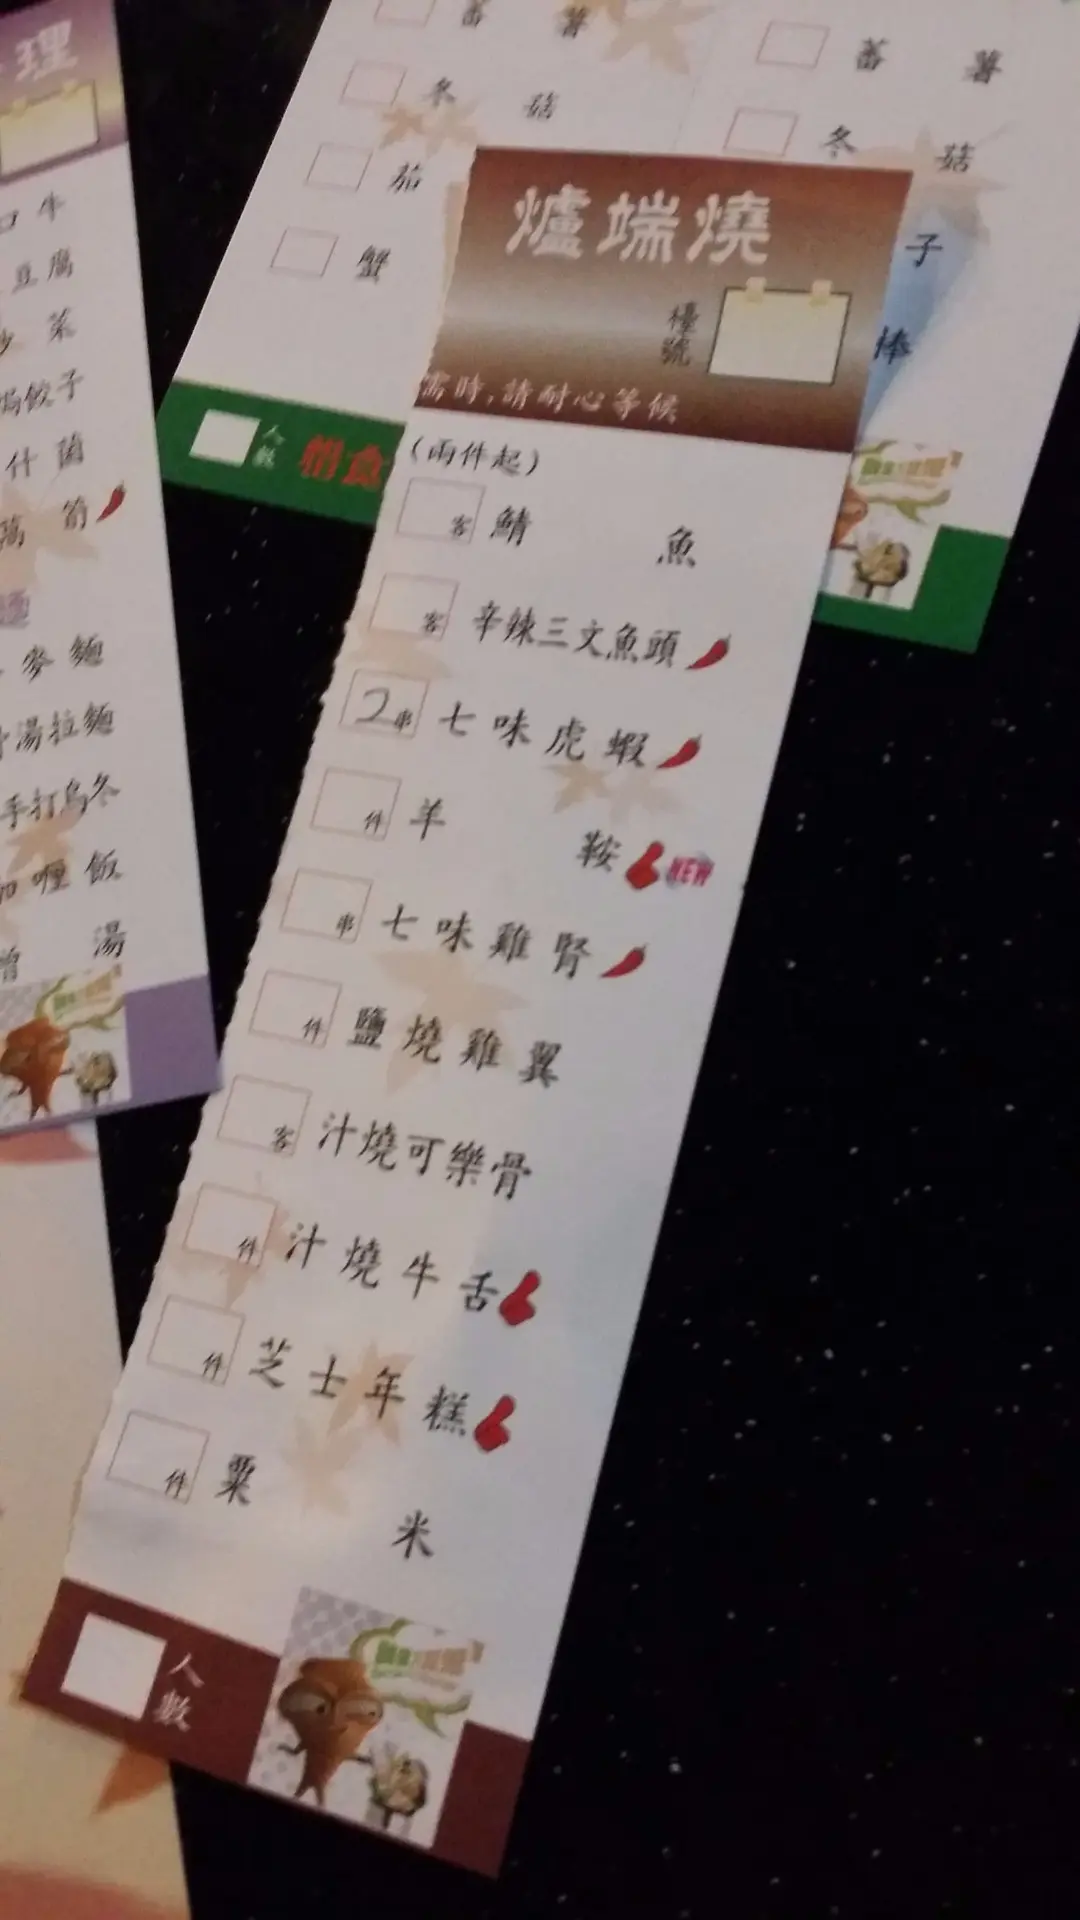 理
口牛
豆腐
炒菜
鍋餃子
什菌
萬箭
麵
麥麵
骨湯拉麵
手打烏冬
咖喱飯
噌湯
蕃薯
冬菇
茄
蟹
人數
蕃薯
冬菇
子
棒
爐端燒
檯號
需時,請耐心等候
(兩件起)
客 鯖魚
客 辛辣三文魚頭
2串 七味虎蝦
件 羊鞍 NEW
串 七味雞腎
件 鹽燒雞翼
客 汁燒可樂骨
件 汁燒牛舌
件 芝士年糕
件 粟米
人數